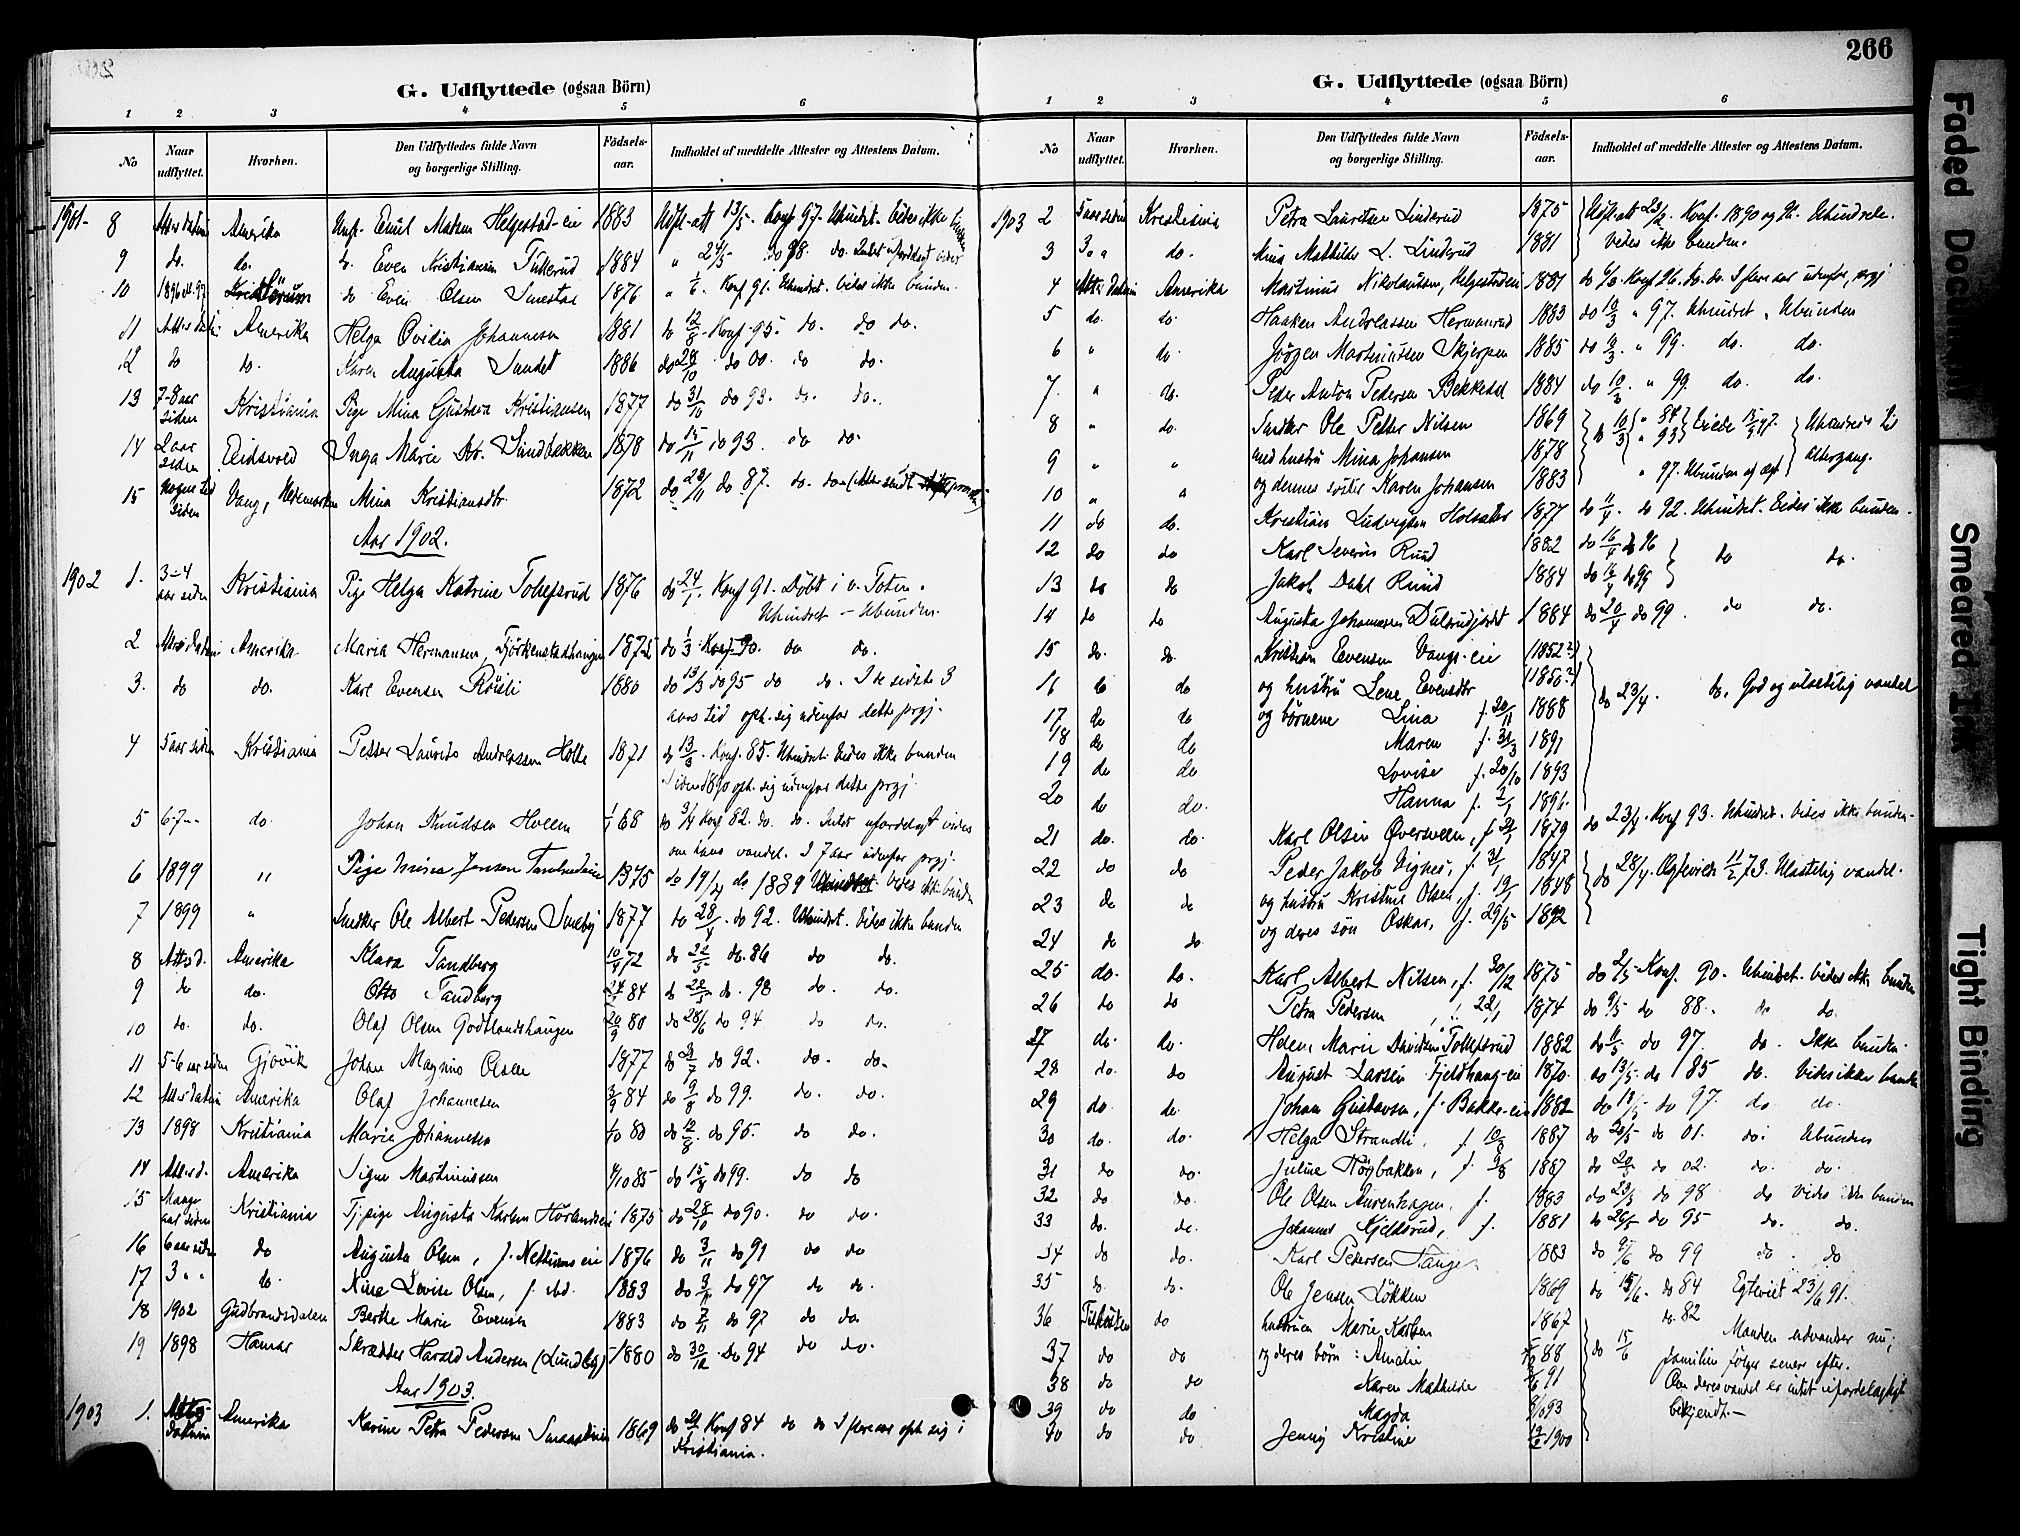 266
G. Udflyttede (ogsaa Börn)
1 2 3 4 5 6
No Naar udflyttet. Hvorhen. Den Udflyttedes fulde Navn og borgerlige Stilling. Fødsels-aar. Indholdet af meddelte Attester og Attestens Datum.
1901- 8 Attes datum Amerika Unk. Emil Madsen Helgestad-eie 1883 Udfl-att 13/5. Konf 97. Uhindret. Vides ikke bunden
9 do. do. do. Even Kristiansen 1884 " 24/5 do 98. do. Intet ufordelagt vides
10 1896 el. 97 do Even Olsen Smestad 1876 " Konf 91. Uhindret. Vides ikke bunden.
11 Attes datum Amerika Helga Ovidia Johannesen 1881 do 12/8. Konf. 95. do. do do.
12 do do. Karen Augusta Sundet 1886 do 28/10 do 00. do do.
13 7-8 aar siden Kristiania Pige Mina Gustava Kristiansen 1877 do 31/10 do 93. do. do.
14 2 aar siden Eidsvold Inga Marie Kr. Sundbakken 1878 do 15/11 do 93. do do.
15 nogen tid siden Vang, Hedemarken Mina Kristiansdtr. 1872 do 28/11 do 87. do. do.
Aar 1902.
1902 1. 3-4 aar siden Kristiania Pige Helga Katrine Tollefsrud 1876 do 24/1. Konf 91. Døbt i v. Toten.
Uhindret - Ubunden.
2 Attes datum Amerika Maria Hermansen, 1875 do 1/3 Konf 90. do do.
3. do do. Karl Evensen Røisli 1880 do 13/3 do 95 do do. I de sidste 3
aars tid oph. sig udenfor dette prgj.
4 5 aar siden Kristiania Petter Laurits Andreassen Holte 1871 do 13/3. Konf. 85. Uhindret. Vides ikke bunden
Siden 1890 oph. sig udenfor dette prgj.
5 6-7 " " do. Johan Knudsen Hveem 1/1 68 do 3/4 Konf 82. do. do. Intet ufordelagt vides
om hans vandel. I 7 aar udenfor prgj.
6 1899 " Pige Mina Jensen 1875 do 19/4 do 1889 Vides ikke bunden
7 1899 " Snedker Ole Albert Pedersen Smeby 1877 do 28/4. do 92. Uhindret. Vides ikke bunden
8 Attesd. Amerika Klara Tandberg 10/4 72 do 22/5 do. 86 do do.
9 do do. Otto Tandberg 84 do 22/5 do. 98 do. do.
10 do. do. Olaf Olsen Godtlandshaugen 20/9 80 do 28/6 do 94 do do.
11 5-6 aar siden Gjøvik Johan Magnus Olsen 1877 do do 92. do. do.
12 Attes datum Amerika Olaf Johannesen 84 do 9/8 do 99. do. do.
13 1898 Kristiania Marie Johannesen 80 do 12/8. do 95. do do.
14 Attesd. Amerika Signe Martinussen 85 do 15/8 do 99. do do
15 Mange aar siden Kristiania Tj. pige Augusta Karlsen 1875 do 28/10 do 90. do do.
16 6 aar siden do Augusta Olsen, f. Nettums eie 1876 do 3/11 do 91 do do
17 3 " " do. Nina Lovise Olsen, f. ibd. 1883 do 3/11 do 97 do do.
18 1902 Gudbrandsdalen Berthe Marie Evensen 1883 do 7/11 do 97 do do
19 1898 Hamar Skrædder Harald Andersen (Lundby) 1880 do 30/12. do 94 do do.
Aar 1903.
1903 1. Attes datum Amerika Karine Petra Pedersen 1869 do Konf 84 do do I flere aar oph sig i
Kristiania.
G. Udflyttede (ogsaa Börn)
1 2 3 4 5 6
No Naar udflyttet. Hvorhen. Den Udflyttedes fulde Navn og borgerlige Stilling. Fødsels-aar. Indholdet af meddelte Attester og Attestens Datum.
1903 2 5 aar siden Kristiania Petra Lauritsen Linderud 1875 Udfl-att 23/2. Konf. 1890 og 96. Uhindrede.
3 3 " " do. Mina Mathilde L. Linderud 1881 Vides ikke bunden.
4 Attes datum Amerika Martinus Nikolaisen, Helgestadeie 1881 do Konf 96. do. do. I flere aar udenfor prgj
5 do. do. Haaken Andreassen Hermanrud 1883 do 10/3 " 97. Uhindret. Ubunden
6 " do. Jørgen Martinussen Skjerpen 1885 do 10/3. " 99. do. do.
7. " do. Peder Anton Pedersen 1884 do 10/3. " 99. do. do.
8 " do. Snedker Ole Petter Nilsen 1869 do 10/3 " 84 Uhindrede til
9 " " med hustru Mina Johansen 1878 " 93 altergang.
10 " " og dennes søster Karen Johansen 1883 " 97. Ubunden af ægt
11 do do. Kristian Ludvigsen 1877 do 11/4. do 92. Uhindret. Vides ikke bunden.
12 do do Karl Severin Ruud 1882 do 16/4 do 96 do do.
13 do do Jakob Dahl Ruud 1884 do 16/4 do 99
14 do do Augusta Johannesen 1884 do 20/4 do 99. do do.
15 do. do. Kristian Evensen Vangs-eie (1852?)
16 do do og hustru Lene Evensdtr (1850?) do 23/4. do. God og ulastelig vandel
17 do do og børnene Lina f. 20/11 1888
18 do do Maren f. 31/3 1891
19 do do Lovise f. 20/10 1893
20 do do. Hanna f. 1896.
21 do. do. Karl Olsen Øversveen, f. 1879 do 23/4. Konf 93. Uhindret. Vides ikke bunden.
22 do do Peder Jakob Vignes, f. 31/1 1847 do 28/4. Egteviede 11/2 73. Ulastelig vandel.
23 do do og hustru Kristine Olsen, f. 19/1 1848
24 do do og deres søn Oskar, f. 29/5 1892
25 do. do. Karl Albert Nilsen, f. 30/12 1875 do 2/5 Konf. 90. Uhindret. Vides ikke bunden
26 do do Petra Pedersen, f. 22/1 1874 do 9/5 do 88. do do.
27 do. do. Helene Marie Davidsen Tollefsrud 1882 do 11/5 do 97. do. Ikke bunden.
28 do. do August Larsen Fjeldhaug-eie 1870. do 13/5 do 85 do. Vides ikke bunden
29 do. do. Johan Gustavsen, f. Bakke-eie 1882 do 18/5 do 97. do do.
30 do. do. Helga Strandli, f. 10/8 1887 do 20/5 do 01. do. Ubunden
31 do do. Juline Høgbakken, f. 1887 do 20/5 do 02. do. do.
32 do do. Ole Olsen Aurenhagen, f. 1883 do 23/5 do 98 do Vides ikke bunden
33 do. do. Johannes Kjeldsrud, f. 1881 do 26/5 do 95 do. do.
34 do do. Karl Pedersen 1883 do do 99 do. do
35 do. do. Ole Jensen Løkken 1869 do 15/6. do 84 Egteviet 23/6 91.
36 do hustruen Marie Karlsen 1867 do. 82
37 do do og deres børn: Amalie 88 do 15/6 Manden udvandrer nu;
38 do do Karen Mathilde 91 familien følger senere efter.
39 do do Magda 93 Om deres vandel er intet ufordelagtigt
40 do do Jenny Kristine 1900 bekjendt.-
Faded Document
Smeared Ink
Tight Binding